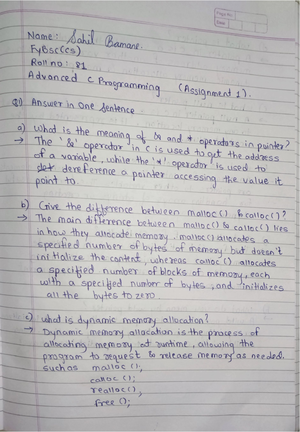 Name: Sahil Bamane.
FyBsc(CS)
Roll no: 81
Advanced C Programming (Assignment 1).
Q1) Answer in One Sentence.
a) What is the meaning of & and * operators in pointer?
→ The '&' operator in C is used to get the address
of a variable, while the '*' operator is used to
dereference a pointer, accessing the value it
point to.
b) Give the difference between malloc() & calloc()?
→ The main difference between malloc() & calloc() lies
in how they allocate memory. malloc() allocates a
specified number of bytes of memory but doesn't
initialize the content, whereas calloc() allocates
a specified number of blocks of memory, each
with a specified number of bytes, and initializes
all the bytes to zero.
c) what is dynamic memory allocation?
→ Dynamic memory allocation is the process of
allocating memory at runtime, allowing the
program to request & release memory as needed.
such as malloc();
calloc();
realloc();
free();